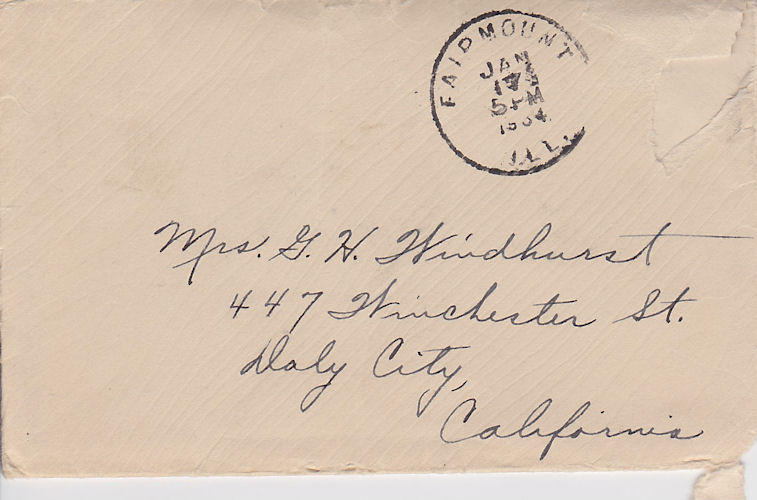 FAIRMOUNT
JAN
17
5 PM
1934
ILL.
Mrs. G. H. Windhurst
447 Winchester St.
Daly City,
California